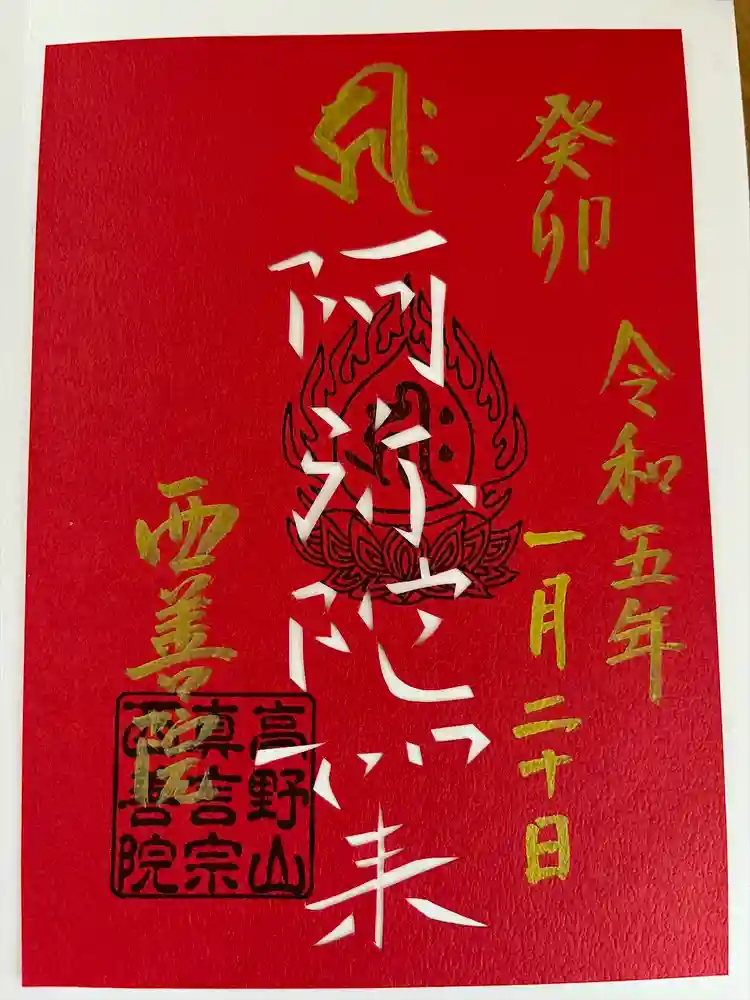 癸卯
令和五年
一月二十日
𑖮𑖿𑖨𑖱𑖾
阿弥陀如来
𑖮𑖿𑖨𑖱𑖾
西善院
高野山
真言宗
西善院